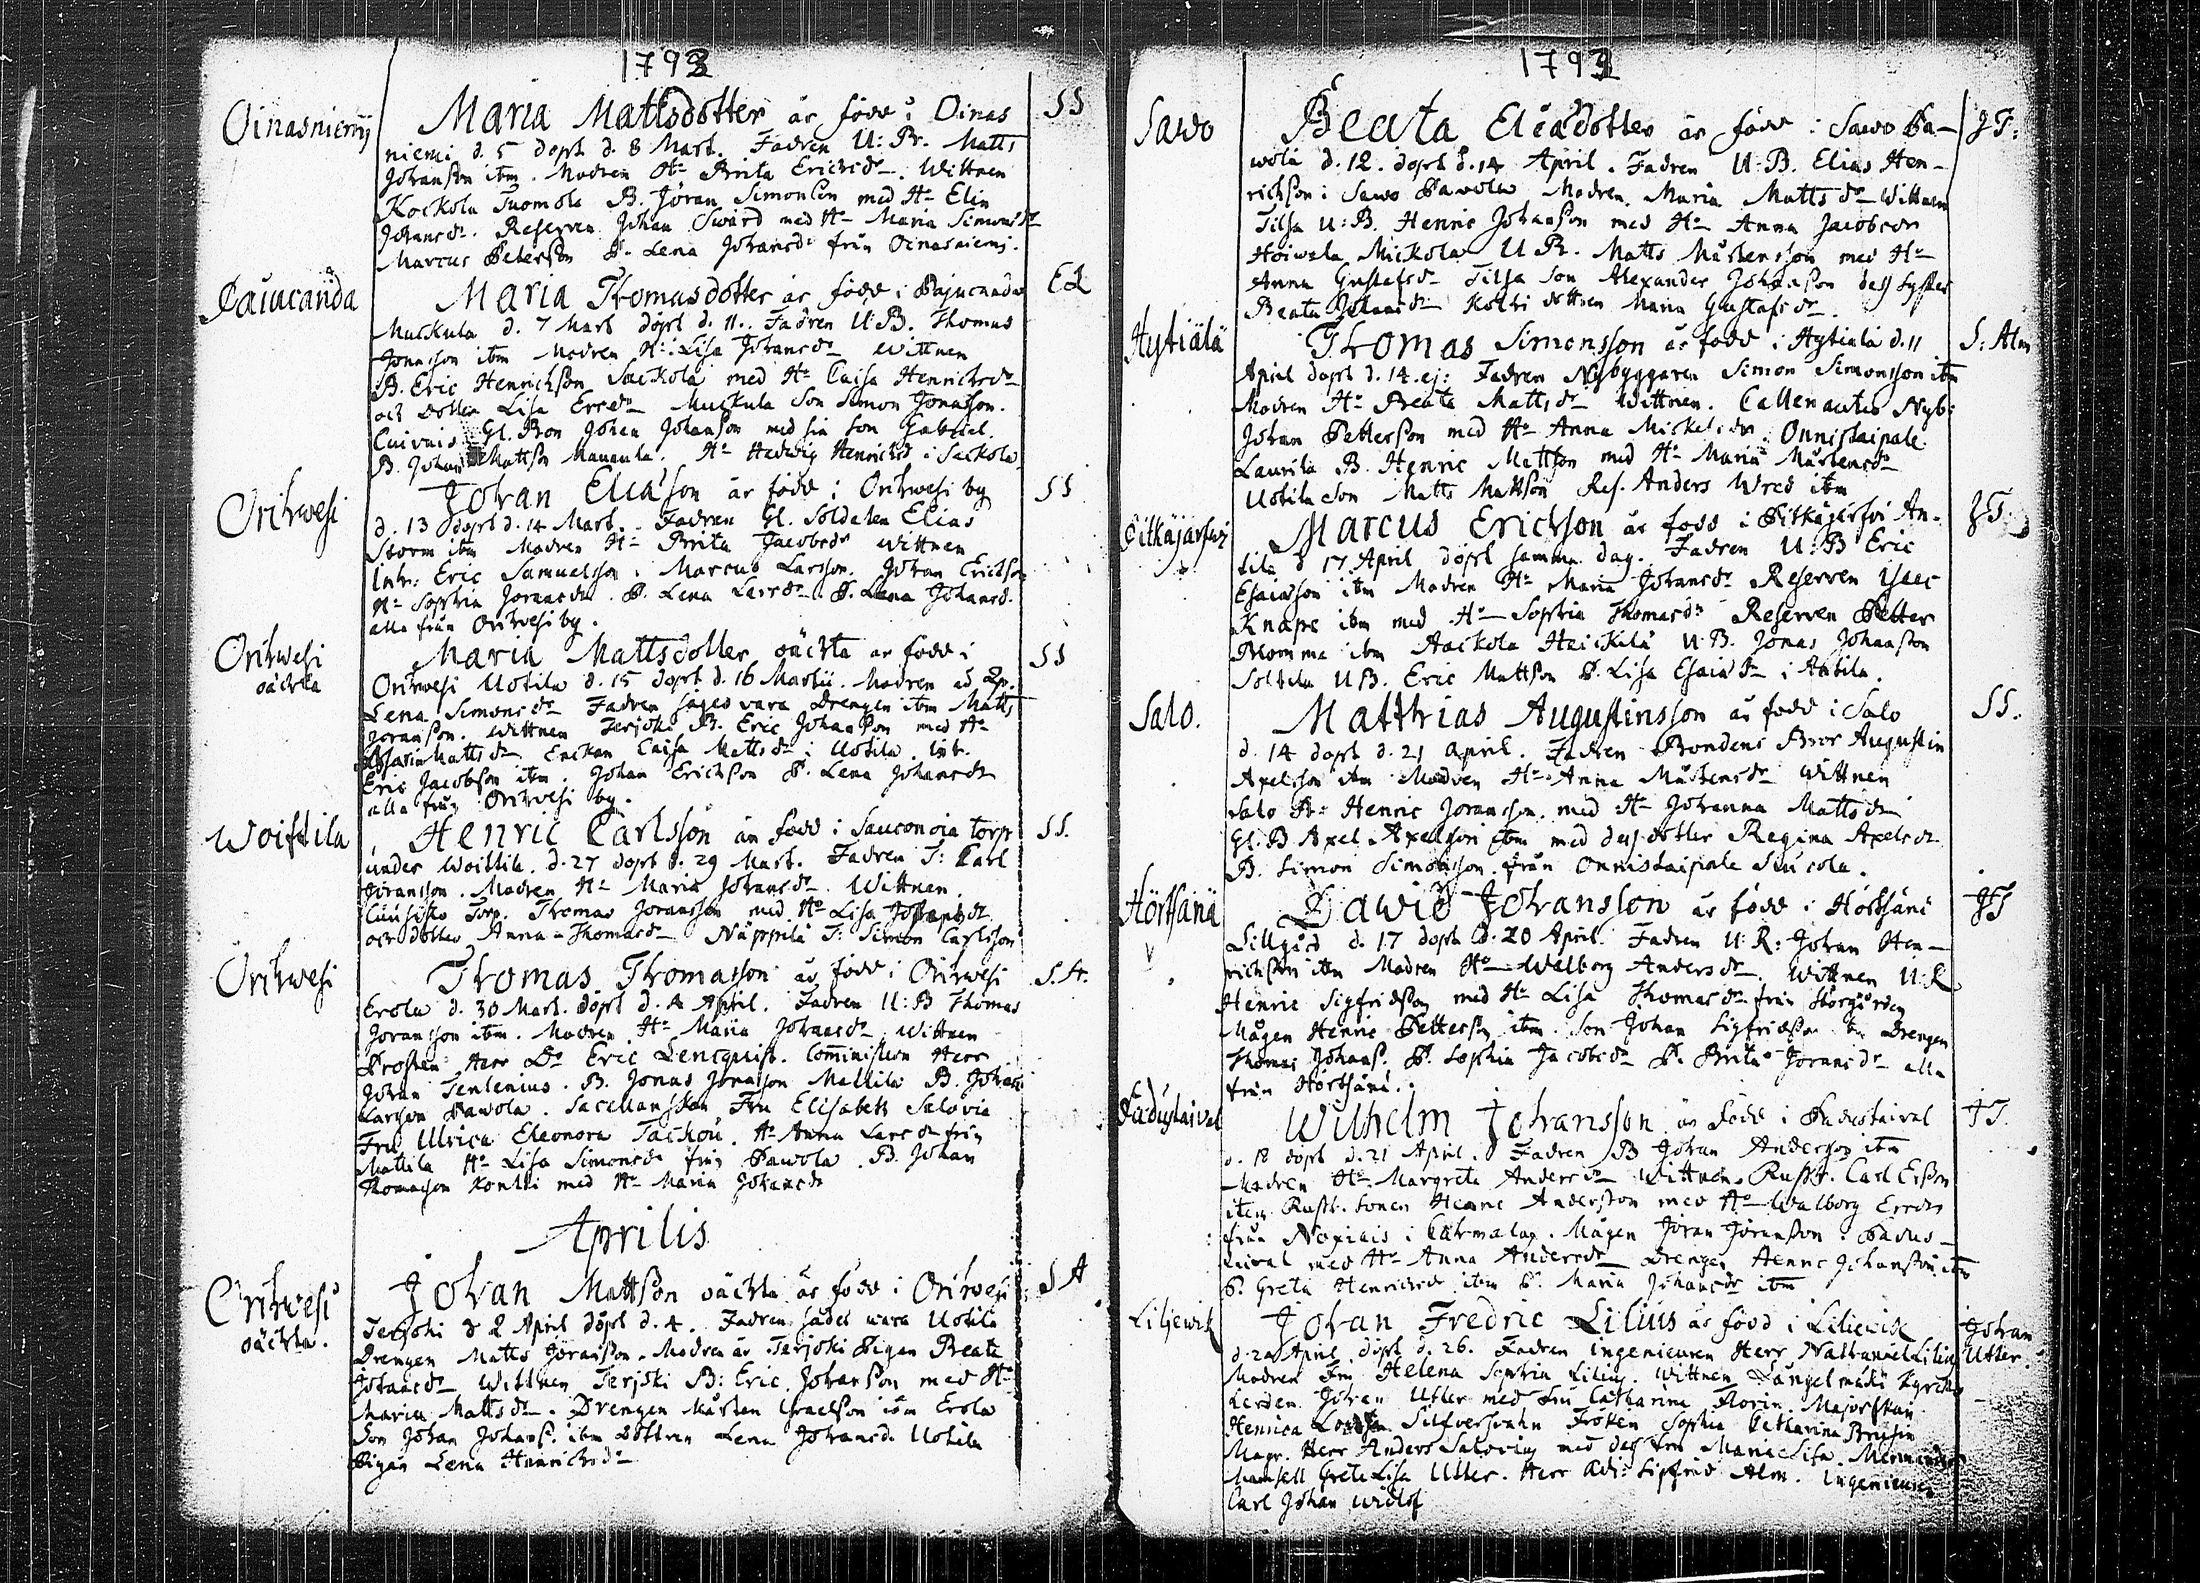 1793
Oinasniemj Maria Mattsdotter är född i Oinas SS
niemi d. 5 döpt d. 8 Mart. Fadren U: Br. Matts
Johansson ibm. Modren Ha Brita Erichsdr. Wittnen
Kockola Tuomola B. Jöran Simonson med Ha Elin
Johansdr. Reserven Johan Swärd med Ha Maria Simonsdr
Marcus Peterson P. Lena Johansdr från Oinasniemi.
Pajucanda Maria Thomasdotter är född i Pajucanda EL
Muckula d. 7 Mart döpt d. 11. Fadren U: B. Thomas
Jonasson ibm Modren H: Lisa Johansdr Wittnen
B. Eric Henrichson Sackola med Ha Caisa Henrichsdr
och dotter Lisa Ericdr Muckula Son Simon Jonasson.
Gl. Bon Johan Johanson med sin son Gabriel.
B. Johan Mattson Ha Hedwig Henrichsd i Sackola
Orihwesi Johan Eliasson är född i Orihwesi by SS
d. 13 döpt d. 14 Mart. Fadren Gl. Soldaten Elias
Storm ibm Modren Ha Brita Jacobsdr Wittnen
Inh: Eric Samuelsson. Marcus Larsson. Johan Erickson
Ha Sophia Joransdr. P. Lena Larsdr P. Lena Johansd.
alla från Orihwesi by.
Orihwesi oäckta Maria Mattsdotter oäckta är född i SS
Orihwesi Uotila d. 15 döpt d. 16 Martii. Modren är Qp.
Lena Simonsdr Fadren säges vara Drengen ibm Matts
Joranson. Wittnen Terjoki B. Eric Johanson med Ha
Maria Mattsdr Enckan Caisa Mattsdr i Uotila. Inh.
Eric Jacobson ibm. Johan Erichson P. Lena Johansdr
alla från Orihwesi by.
Woistila Henric Carlsson är född i Sauconoia torp SS.
under Woitila d. 27 döpt d. 29 Mart. Fadren T: Carl
Jöransson. Modren Ha Maria Johansdr. Wittnen.
Torp. Thomas Joransson med Ha Lisa
och dotter Anna Thomasdr Näppilä T: Simon Carlsson
Orihwesi Thomas Thomasson är född i Orihwesi S.A.
Erola d. 30 Mart. döpt d. 4 April. Fadren U: B Thomas
Joransson ibm. Modren Ha Maria Johansdr Wittnen
Prosten Herr Dr Eric Lencquist. Comministern Herr
Johan Tenlenius. B. Jonas Jonasson Mattila B. Johan
Larsson Pawola. Sacellanskan Fru Elisabeth Salovia
Fru Ulrica Eleonora Tackou. Ha Anna Larsdr från
Mattila Ha Lisa Simonsdr från Pawola. B. Johan
Thomasson Kontti med Ha Maria Johansdr
Aprilis
Orihwesi oäckta. Johan Mattson oäckta är född i Orihwesi SA
Terjoki d 2 April döpt d. 4. Fadren säges wara Uotila
Drengen Matts Jöranson. Modren är Terjoki Pigan Beata
Johansdr Wittnen Terjoki B: Eric Johanson med Ha
Maria Mattsdr. Drengen Mårten Israelson ibm Erola
Son Johan Johans. ibm Dottren Lena Johansd. Uotila
Pigan Lena Henrichsdr
1793
Sawo Beata Eliædotter är född i Sawo Pa- JT:
wola d. 12. döpt d. 14 April. Fadren U: B. Elias Hen-
richson i Sawo Pawola Modren Maria Mattsdr Wittnen
Tilsa U: B. Henric Johanson med Ha Anna Jacobsdr
Hoiwala Mickola U R. Matts Mårtensson med Ha
Anna Gustafsdr Tilsa Son Alexander Johanson dess syster
Beata Johansdr Kothi dottren Maria Gustafsdr.
Hytiälä Thomas Simonsson är född i Hytiälä d. 11 S: Alm
April döpt d. 14. ej: Fadren Nybyggaren Simon Simonsson ibm
Modren Ha Beata Mattsdr Wittnen. Callenautio Nyb:
Johan Petterson med Ha Anna Mickelsdr. Onnistaipale
Laurila B. Henric Mattson med Ha Maria Mårtensdr
Uotila Son Matts Mattson Res. Anders Wred ibm
Pitkäjärfwi Marcus Erickson är född i Pitkäjärfvi An- JT.
tila d 17 April döpt samma dag. Fadren U: B Eric
Esaiasson ibm Modren Ha Maria Johansdr Reserven Isaac
Knape ibm med Ha Sophia Thomasdr Reserven Petter
Blomma ibm Hackola Haickilä U: B. Jonas Johansson
Soltila U B. Eric Mattson P. Lisa Esaiædr i Antila.
Salo. Matthias Augustinsson är född i Salo SS.
d. 14 döpt d. 21 april. Fadren Bondens Bror Augustin
Axelsson ibm Modren Ha Anna Mårtensdr Wittnen
Salo B: Henric Joransson. med Ha Johanna Mattsdr
Gl. B Axel Axelsson ibm med dess dotter Regina Axelsdr
B. Simon Simonsson från Onnistaipale Siucola.
Hörtsänä Dawid Johansson är född i Hörtsänä JT
Lillgård d. 17 döpt d. 20 April. Fadren U: R: Johan Hen-
richson ibm Modren Ha Walborg Andersdr. Wittnen U: R
Henric Sigfridson med Ha Lisa Thomasdr från Storgården
Mågen Henric Petterson ibm. Son Johan Sigfridson ibm Drengen
Thomas Johans. P. Sophia Jacobsdr P. Brita Joransdr alla
från Hörtsänä.
Padustaival Wilhelm Johansson är född i Padustaival JT.
d. 18 döpt d. 21 April. Fadren B Johan Anderson ibm
Modren Ha Margreta Andersdr Wittnen. Rusth. Carl Ersson
item Rusth. sonen Henric Andersson med Ha Walborg Ersdr
från Nopiais i Cuhrmalax. Mågen Jöran Jöranson i Padus-
taival med Ha Anna Andersdr Drengen Henric Johansson ibm
P. Greta Henrichsdr item P. Maria Johansdr ibm
Liljewik Johan Fredric Lilius är född i Liliewik Johan Utter
d. 22 April döpt d. 26. Fadren ingenieuren Herr Nathanael Lilius
Modren Fru Helena Sophia Lilius. Wittnen Längelmäki Kyrcko
herden Johan Utter med Fru Catharina Florin. Majorskan
Henrica Lovisa Silfversvahn Fröken Sophia Catharina
Magr. Herr Anders Salovius med dess fru Maria Lisa
Mamsell Greta Lisa Utter. Herr Adj: Sigfrid Alm. Ingenieuren
Carl Johan Widlof